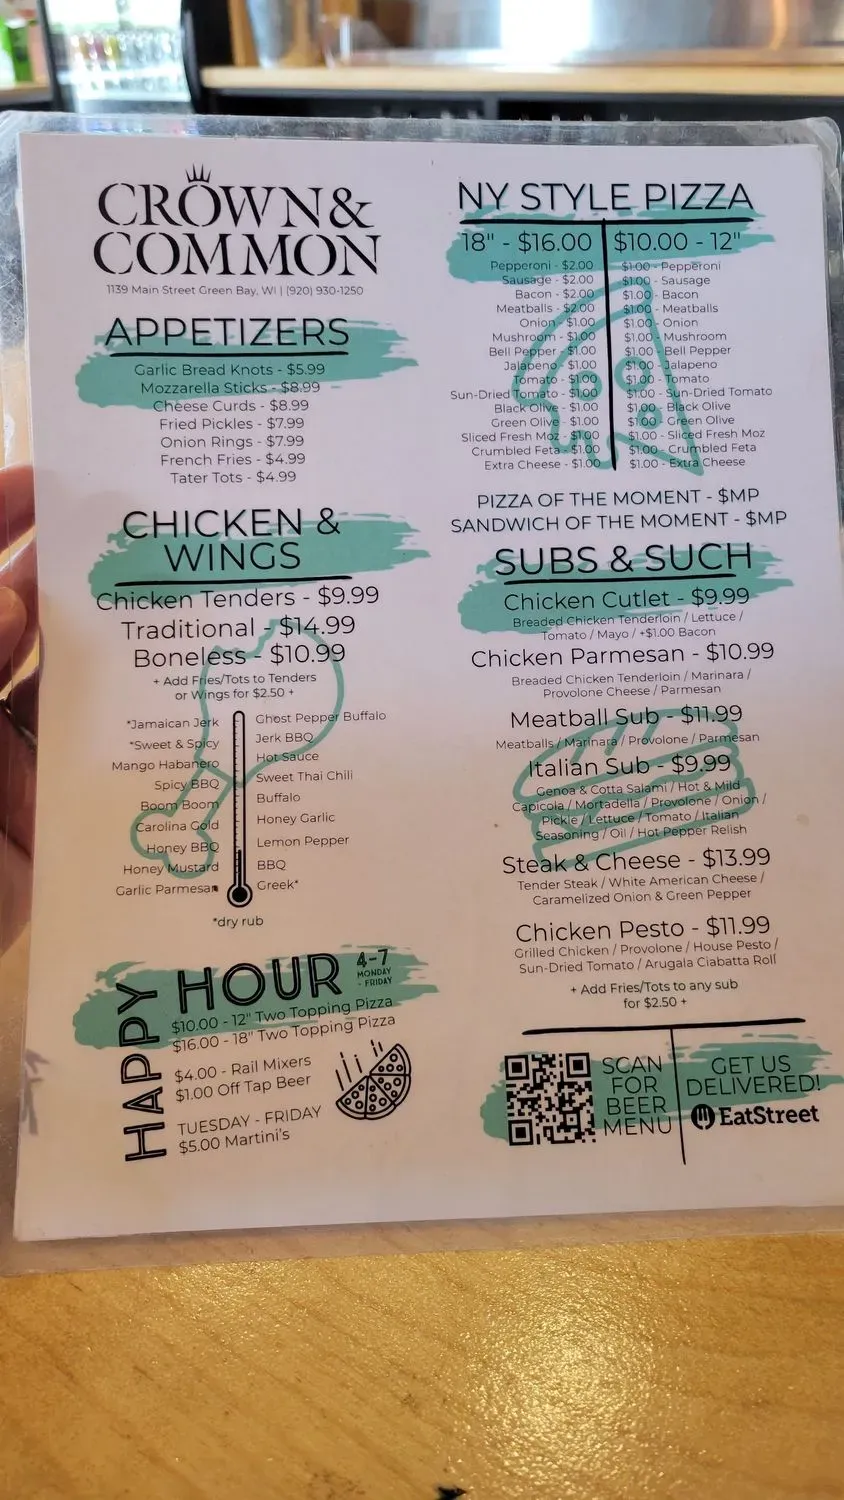 CROWN &
COMMON
1139 Main Street Green Bay, WI | (920) 930-1250
APPETIZERS
Garlic Bread Knots - $5.99
Mozzarella Sticks - $8.99
Cheese Curds - $8.99
Fried Pickles - $7.99
Onion Rings - $7.99
French Fries - $4.99
Tater Tots - $4.99
CHICKEN &
WINGS
Chicken Tenders - $9.99
Traditional - $14.99
Boneless - $10.99
+ Add Fries/Tots to Tenders
or Wings for $2.50 +
*Jamaican Jerk
*Sweet & Spicy
Mango Habanero
Spicy BBQ
Boom Boom
Carolina Gold
Honey BBQ
Honey Mustard
Garlic Parmesan*
Ghost Pepper Buffalo
Jerk BBQ
Hot Sauce
Sweet Thai Chili
Buffalo
Honey Garlic
Lemon Pepper
BBQ
Greek*
*dry rub
HAPPY
HOUR
4-7
MONDAY
- FRIDAY
$10.00 - 12" Two Topping Pizza
$16.00 - 18" Two Topping Pizza
$4.00 - Rail Mixers
$1.00 Off Tap Beer
TUESDAY - FRIDAY
$5.00 Martini's
NY STYLE PIZZA
18" - $16.00
Pepperoni - $2.00
Sausage - $2.00
Bacon - $2.00
Meatballs - $2.00
Onion - $1.00
Mushroom - $1.00
Bell Pepper - $1.00
Jalapeno - $1.00
Tomato - $1.00
Sun-Dried Tomato - $1.00
Black Olive - $1.00
Green Olive - $1.00
Sliced Fresh Moz - $1.00
Crumbled Feta - $1.00
Extra Cheese - $1.00
$10.00 - 12"
$1.00 - Pepperoni
$1.00 - Sausage
$1.00 - Bacon
$1.00 - Meatballs
$1.00 - Onion
$1.00 - Mushroom
$1.00 - Bell Pepper
$1.00 - Jalapeno
$1.00 - Tomato
$1.00 - Sun-Dried Tomato
$1.00 - Black Olive
$1.00 - Green Olive
$1.00 - Sliced Fresh Moz
$1.00 - Crumbled Feta
$1.00 - Extra Cheese
PIZZA OF THE MOMENT - $MP
SANDWICH OF THE MOMENT - $MP
SUBS & SUCH
Chicken Cutlet - $9.99
Breaded Chicken Tenderloin / Lettuce /
Tomato / Mayo / +$1.00 Bacon
Chicken Parmesan - $10.99
Breaded Chicken Tenderloin / Marinara /
Provolone Cheese / Parmesan
Meatball Sub - $11.99
Meatballs / Marinara / Provolone / Parmesan
Italian Sub - $9.99
Genoa & Cotta Salami / Hot & Mild
Capicola / Mortadella / Provolone / Onion /
Pickle / Lettuce / Tomato / Italian
Seasoning / Oil / Hot Pepper Relish
Steak & Cheese - $13.99
Tender Steak / White American Cheese /
Caramelized Onion & Green Pepper
Chicken Pesto - $11.99
Grilled Chicken / Provolone / House Pesto /
Sun-Dried Tomato / Arugala Ciabatta Roll
+ Add Fries/Tots to any sub
for $2.50 +
SCAN
FOR
BEER
MENU
GET US
DELIVERED!
EatStreet